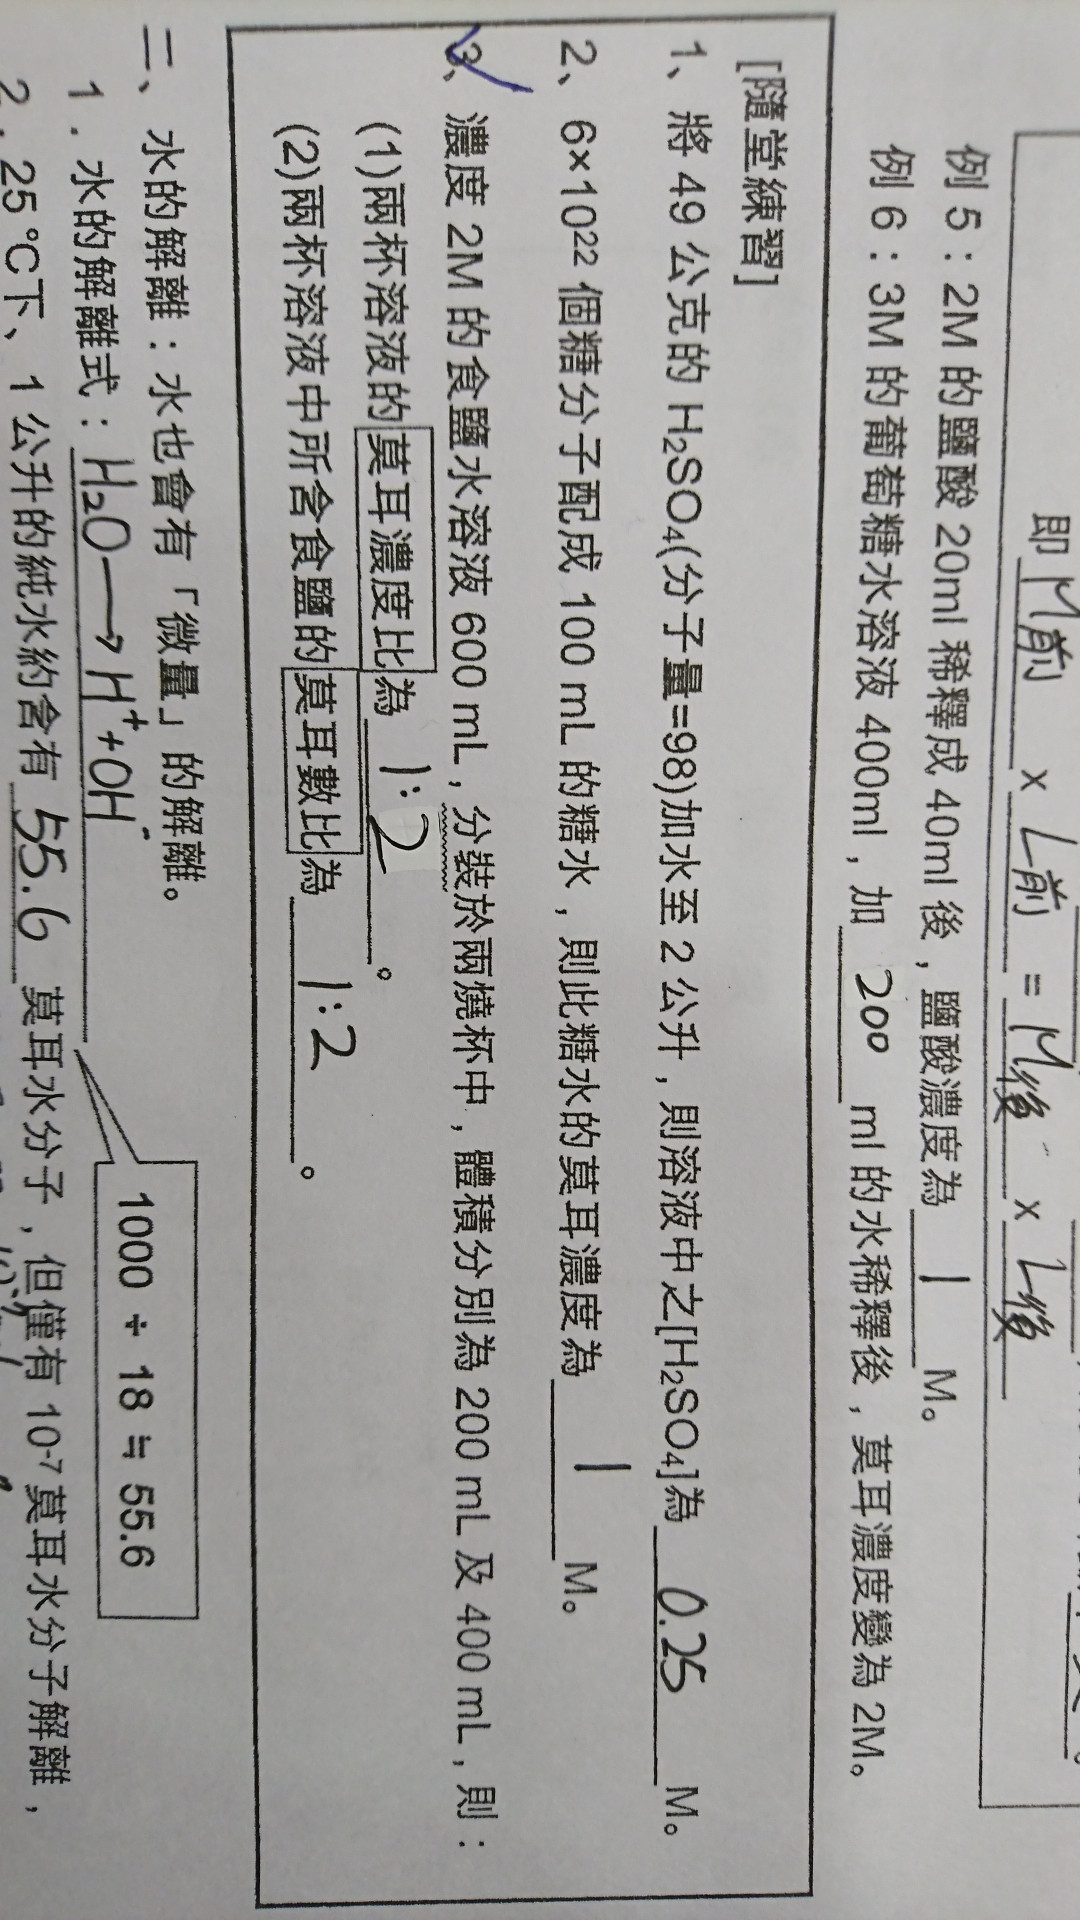 即 M前 × L前 = M後 × L後
例 5：2M 的鹽酸 20ml 稀釋成 40ml 後，鹽酸濃度為 1 M。
例 6：3M 的葡萄糖水溶液 400ml，加 200 ml 的水稀釋後，莫耳濃度變為 2M。
[隨堂練習]
1、將 49 公克的 H₂SO₄(分子量=98)加水至 2 公升，則溶液中之[H₂SO₄]為 0.25 M。
2、6×10²² 個糖分子配成 100 mL 的糖水，則此糖水的莫耳濃度為 1 M。
3、濃度 2M 的食鹽水溶液 600 mL，分裝於兩燒杯中，體積分別為 200 mL 及 400 mL，則：
(1)兩杯溶液的莫耳濃度比為 1:2。
(2)兩杯溶液中所含食鹽的莫耳數比為 1:2。
二、水的解離：水也會有「微量」的解離。
1．水的解離式：H₂O→H⁺+OH⁻
1000 ÷ 18 ≒ 55.6
2．25℃下、1 公升的純水約含有 55.6 莫耳水分子，但僅有 10⁻⁷ 莫耳水分子解離，